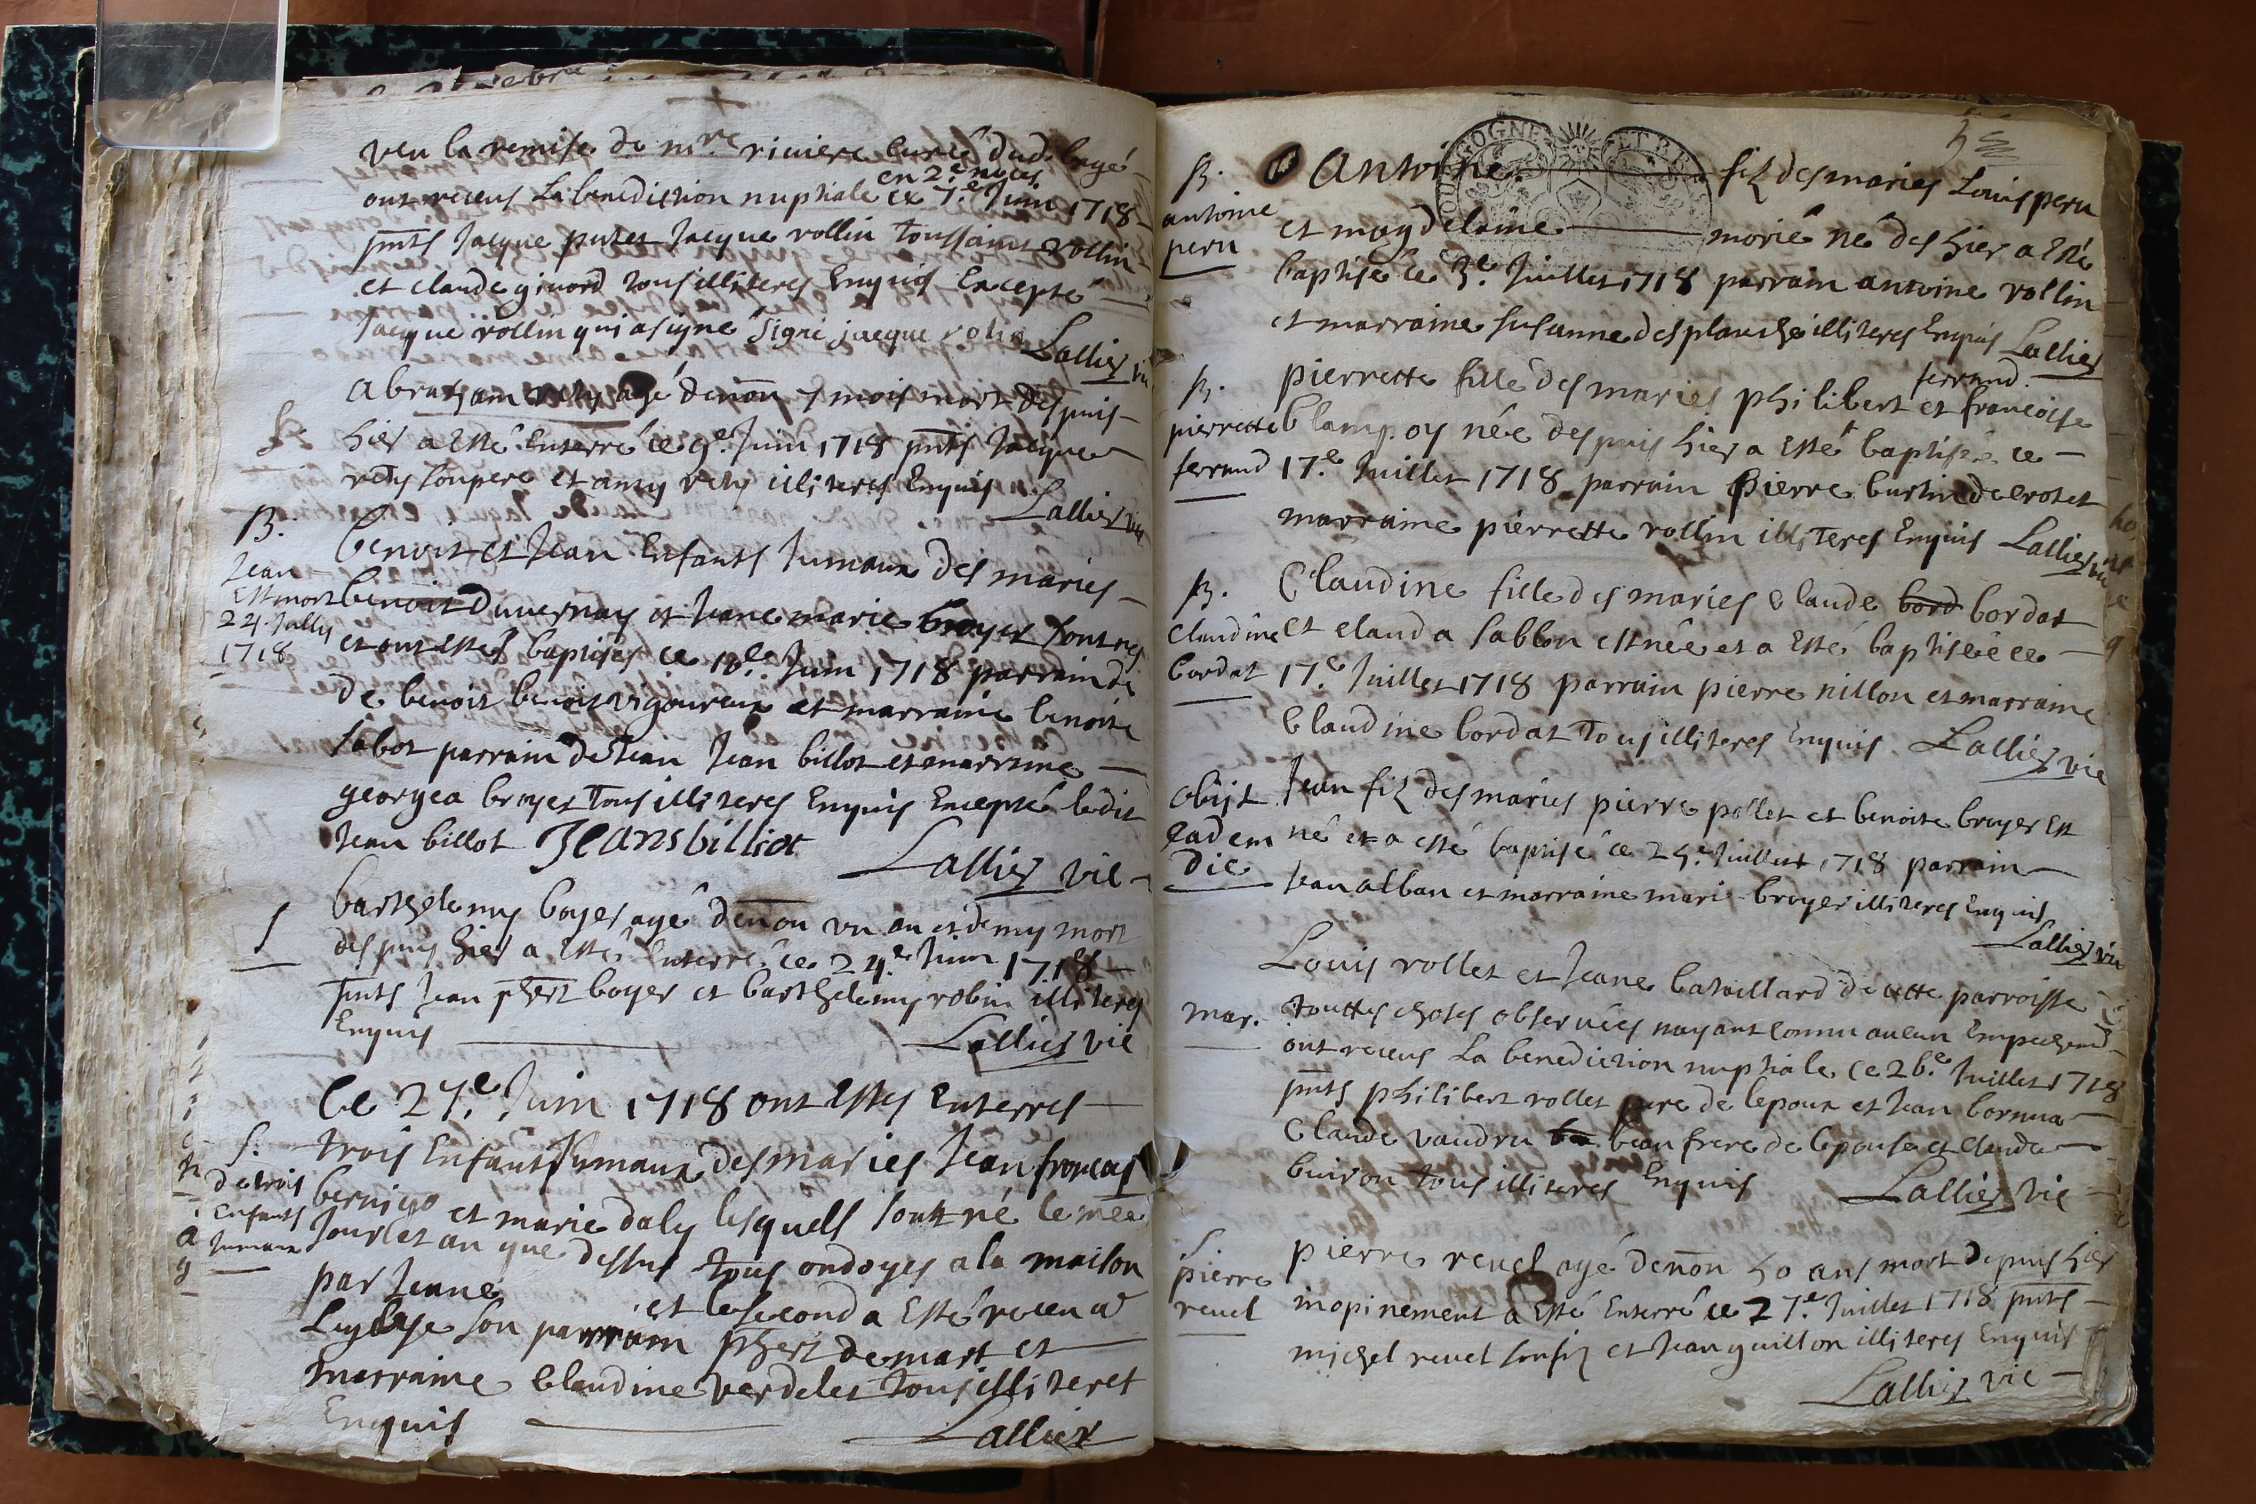 veu la remise de mre riviere curé dud. bagé
ont receus La benediction nuptiale en 2e noces ce 7.e Juin 1718
pnts Jacque putet Jacque rollin toussaint rollin
et claude givord tous illiteres Enquis Excepté
Jacque rollin qui a signé Signé jacque rolin
Lallier vic
abraham rety agé denon 7 mois mort despuis
hier a Esté Enterré ce 9.e Juin 1718 pnts Jacque
rety son pere et rety illiteres Enquis
Lallier vic
B.
Jean
Est mort
24 Jully
1718
benoit et Jean Enfants Jumaux des maries
benoit Duvernay et Jeane marie broyer sont nes
et ont estes baptises ce 10.e Juin 1718 parrain de
de benoit benoit vigoureux et marraine benoite
sabot parrain de Jean Jean billot et marraine
georgea broyer tous illiteres Enquis Excepté ledit
Jean billot Jeans billiot
Lallier vic
S
barthelemy boyer agé denon vn an et demy mort
despuis hier a Esté Enterré ce 24.e Juin 1718
pnts Jean phert boyer et barthelemy robin illiteres
Enquis
Lallier vic
S.
de trois
Enfants
Jumaux
Ce 27.e Juin 1718 ont Estes Enterres
trois Enfants Jumaux des maries Jean francois
bernigo et marie daly lesquels sont né le mee
Jour et an que dessus tous ondoyes a la maison
par Jeane
et le second a Esté receu a
Leglise son parrain phert demart et
marraine Claudine verdelet tous illiteret
Enquis
Lallier
B.
antoine
peru
Antoine fiz des maries Louis peru
et magdelaine morié né des hier a Esté
baptisé ce 3.e Juillet 1718 parrain antoine rollin
et marraine susanne desplanche illiteres Enquis Lallier
B.
pierrette
ferrand
pierrette fille des maries philibert ferrand et francoise
blampoy née despuis hier a Esté baptisée ce
17.e Juillet 1718 parrain pierre burtin de crotet
marraine pierrette rollin illiteres Enquis Lallier vic
B.
Claudine
bordat
Claudine fille des maries Claude bord bordat
et clauda sablon est née et a Esté baptisée ce
17.e Juillet 1718 parrain pierre nillon et marraine
Claudine bordat tous illiteres Enquis Lallier vic
obiit
eadem
die
Jean fiz des maries pierre pollet et benoite broyer Est
né et a esté baptisé ce 25.e Juillet 1718 parrain
Jean alban et marraine marie broyer illiteres Enquis
Lallier vic
mar.
Louis rollet et Jeane bataillard de cette parroisse
touttes choses observées nayant connu aucun Empechemt
ont receus La benediction nuptiale ce 26.e Juillet 1718
pnts philibert rollet pere de lepoux et Jean bornua
Claude vaudru beau frere de lepouse et claude
buiron tous illiteres Enquis Lallier vic
S
pierre
revel
pierre revel agé denon 50 ans mort depuis hier
inopinement a Esté Enterré ce 27.e Juillet 1718 pnts
michel revel son fiz et Jean guillon illiteres Enquis
Lallier vic